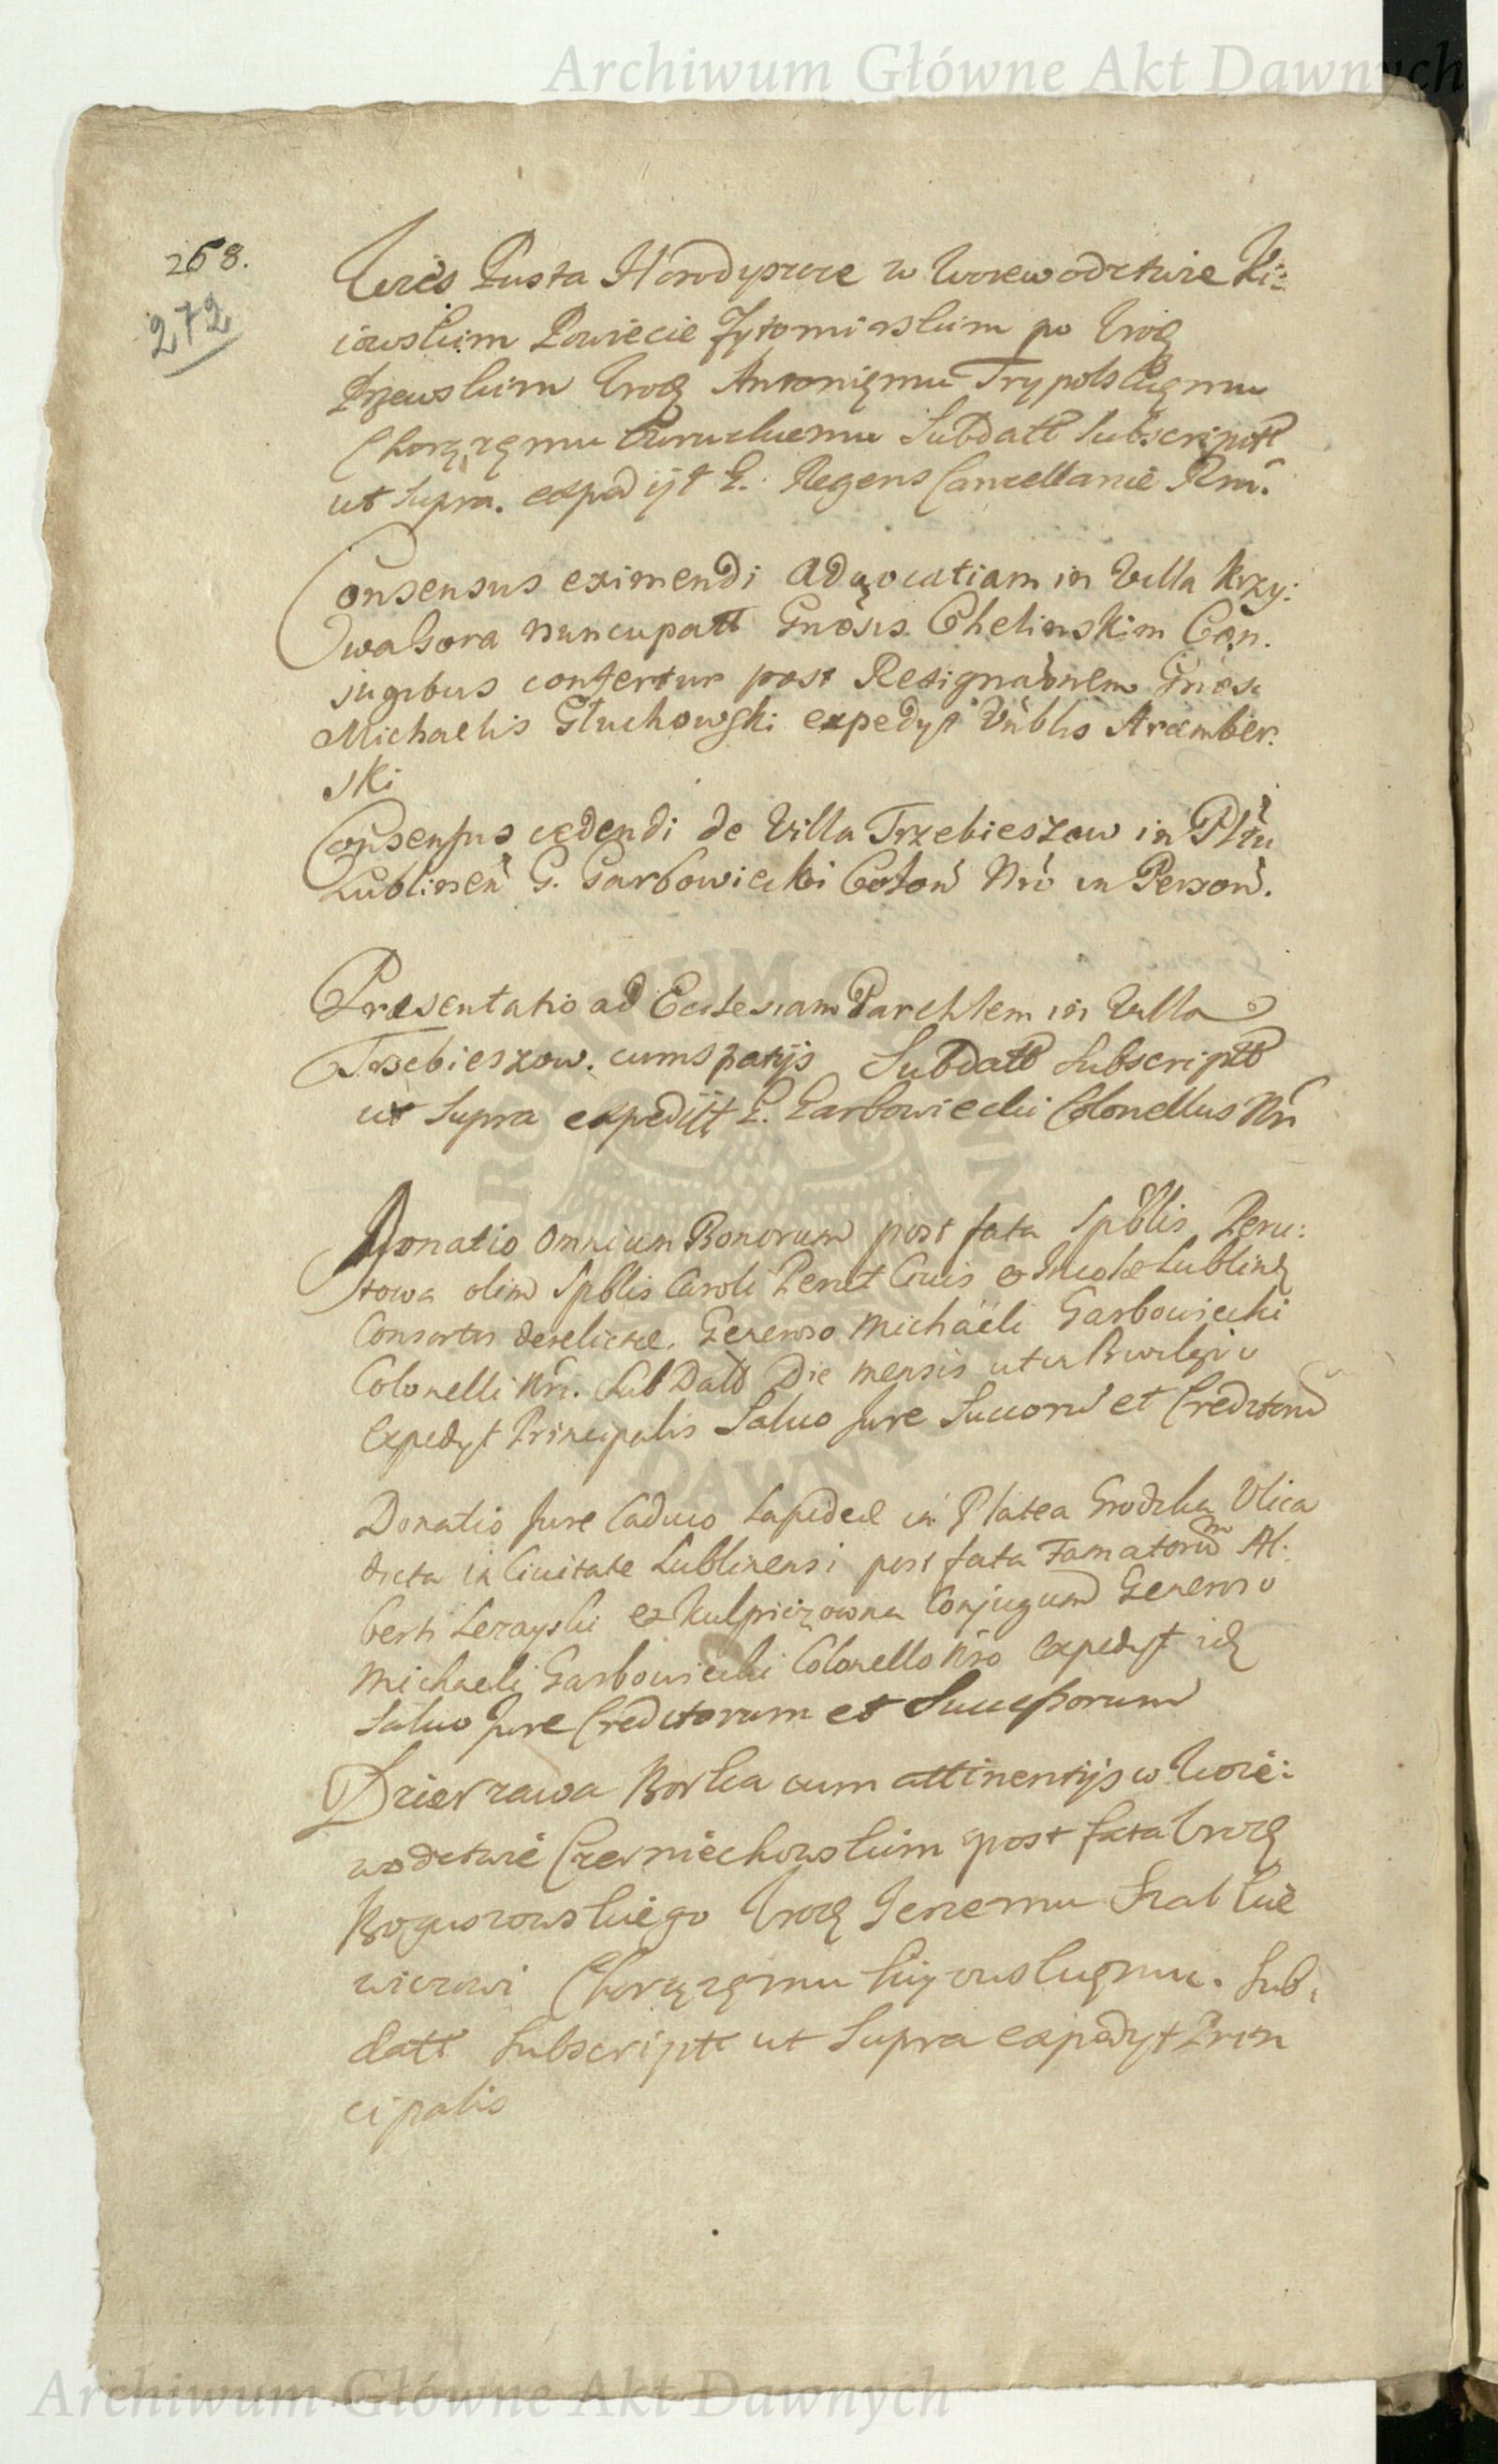 Archiwum Główne Akt Dawnych
268.
272
Wies Pusta Horodyszcze w Woiewodztwie Ki:
iowskim Powiecie Zytomirskim po Urodz
Urodz Antoniemu Trypolskiemu
Chorązemu Subdatt Subscriptt
ut Supra. expedijt G. Regens Cancellariae Rni.
Consensus eximendi Advocatiam in Villa Krzy:
waGora nuncupatt Gnosis Chelinskim Con.
jugibus confertur post Resignaõnem Gnosi
Michaelis Głuchowski expedyt Vnblis Aramber.
ski
Consensus cedendi de Villa Trzebieszow in Pltu
Lublinen G. Garbowiecki Colon Nri in Person.
Præsentatio ad Ecclesiam Parchlem in Villa
Trzebieszow. cumspatijs Subdatt Subscriptt
ut Supra expedijt G. Garbowiecki Colonellus Nri
Donatio omnium Bonorum post fata Spblis Peru:
towa olim Spblis Caroli Peret Ciuis et Incolæ Lublinẽ
Consortis derelictæ. Generoso Michaëli Garbowiecki
Colonelli Nri. Sub Datt Die mensis ut in Privilegio
Expedyt Principalis Saluo Jure Succorũ et Creditorũ
Donatio Jure Caduco Lapideæ in Platea Grodzka Ulica
dicta in Ciuitate Lublinensi post fata Famatorũ Al:
berti Lezayski et Kulpiczowna Conjugum Generoso
Michaeli Garbowiecki Colonello Nro Expedyt id
Saluo Jure Creditorum et Successorum
Dzierzawa Borka cum attinentijs w Woie:
wodztwie Czerniechowskim post fata Urodz
Boguszowskiego Urodz Jerzemu Szablue
wiczowi Chorązęmu Kijowskięmu. Sub,
datt Subscriptt ut Supra expedyt Prin
cipalis
Archiwum Główne Akt Dawnych